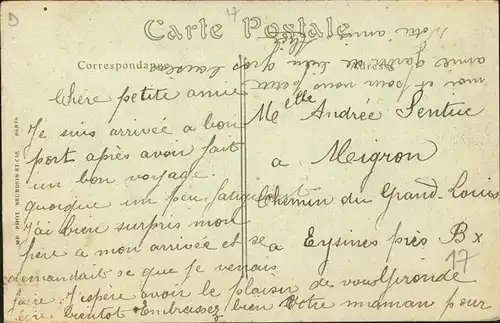 17
Carte Postale
Correspondance
Adresse
Chère petite amie
Je suis arrivée a bon
port après avoir fait
un bon voyage.
quoique un peu fatiguant
J'ai bien surpris mon
père a mon arrivée et se
demandait se que je venais
faire J'espère avoir le plaisir de vous
lire bientot Embrassez bien Votre maman pour
moi et pour vous
amie de bien gros
Votre amie
Melle Andrée Sentuc
a Meigron
Chemin du Grand-Louis
a Eysines près Bx
Gironde
17
ND PHOT NEURDEIN ET CIE PARIS